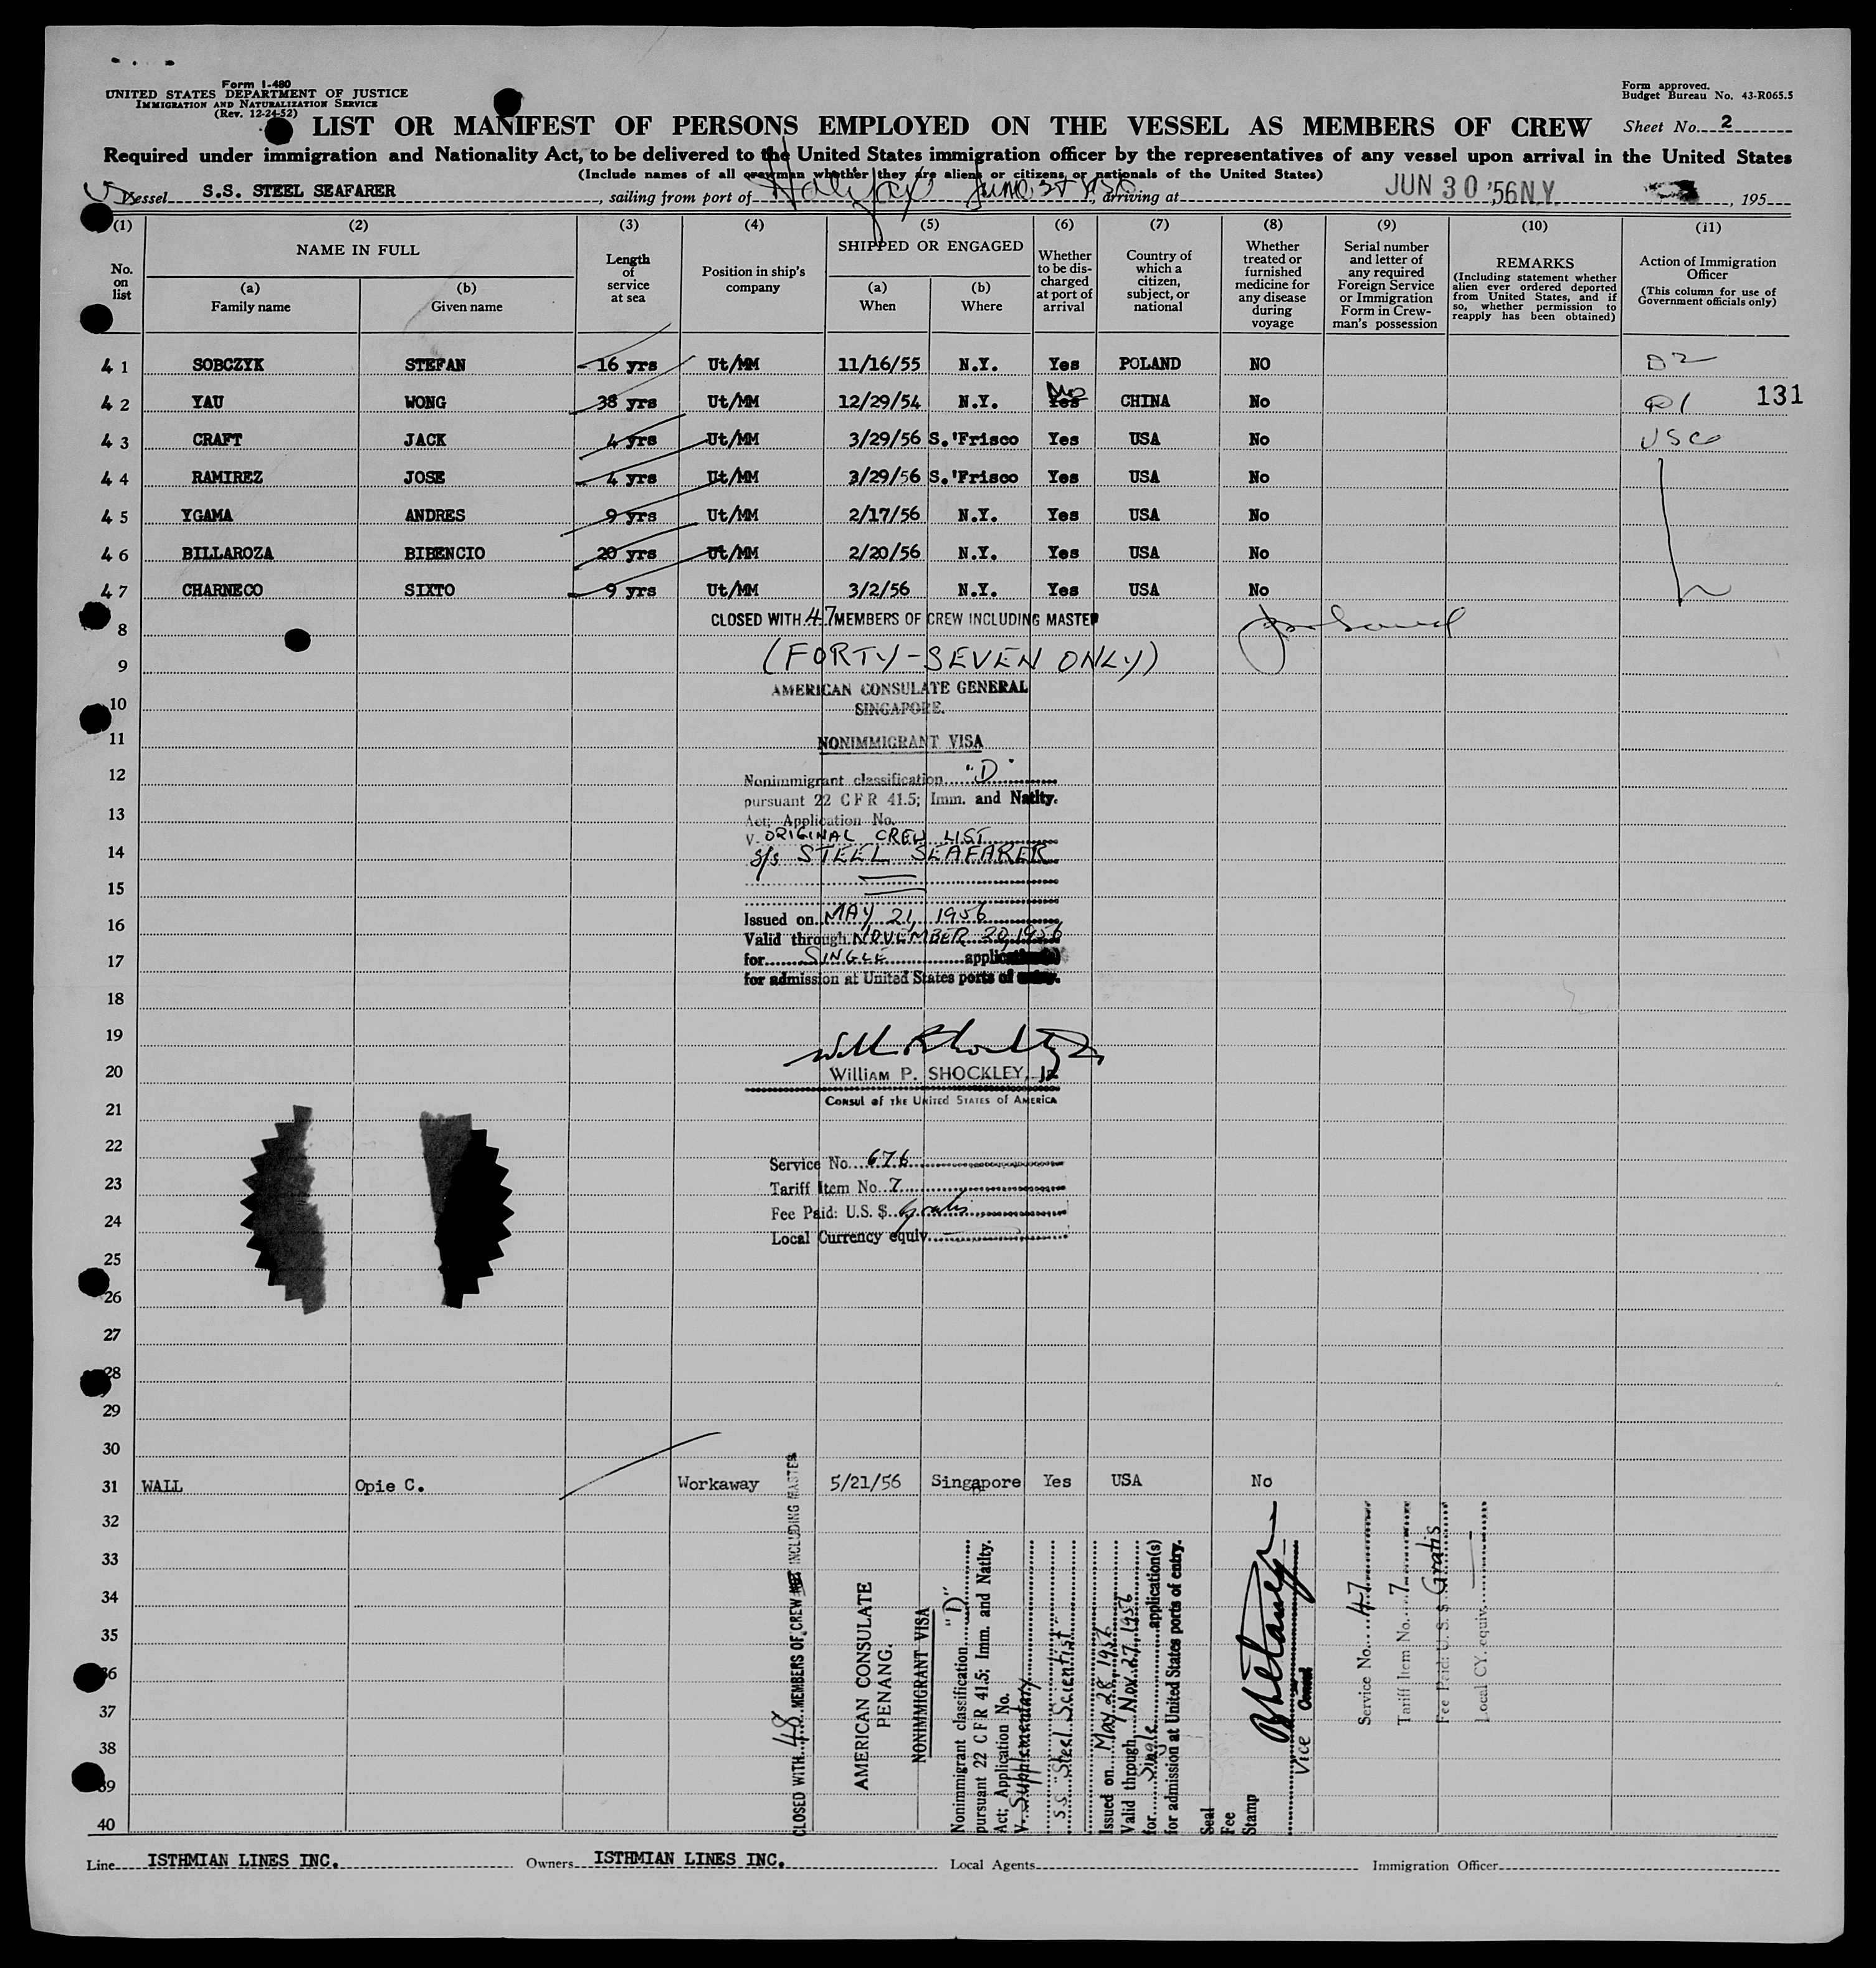 Form I-480
UNITED STATES DEPARTMENT OF JUSTICE
IMMIGRATION AND NATURALIZATION SERVICE
(Rev. 12-24-52)
Form approved.
Budget Bureau No. 43-R065.5
LIST OR MANIFEST OF PERSONS EMPLOYED ON THE VESSEL AS MEMBERS OF CREW
Sheet No. 2
Required under immigration and Nationality Act, to be delivered to the United States immigration officer by the representatives of any vessel upon arrival in the United States
(Include names of all crewman whether they are aliens or citizens or nationals of the United States)
Vessel S.S. STEEL SEAFARER, sailing from port of Halifax June, arriving at JUN 30 '56 N.Y., 195
(1) (2) (3) (4) (5) (6) (7) (8) (9) (10) (11)
No. on list
NAME IN FULL
(a) Family name
(b) Given name
Length of service at sea
Position in ship's company
SHIPPED OR ENGAGED
(a) When
(b) Where
Whether to be discharged at port of arrival
Country of which a citizen, subject, or national
Whether treated or furnished medicine for any disease during voyage
Serial number and letter of any required Foreign Service or Immigration Form in Crewman's possession
REMARKS
(Including statement whether alien ever ordered deported from United States, and if so, whether permission to reapply has been obtained)
Action of Immigration Officer
(This column for use of Government officials only)
4 1 SOBCZYK STEFAN 16 yrs Ut/MM 11/16/55 N.Y. Yes POLAND NO D2
4 2 YAU WONG 38 yrs Ut/MM 12/29/54 N.Y. Yes No CHINA No 131
4 3 CRAFT JACK 4 yrs Ut/MM 3/29/56 S.'Frisco Yes USA No
4 4 RAMIREZ JOSE 4 yrs Ut/MM 3/29/56 S.'Frisco Yes USA No
4 5 YGAMA ANDRES 9 yrs Ut/MM 2/17/56 N.Y. Yes USA No
4 6 BILLAROZA BIBENCIO 20 yrs Ut/MM 2/20/56 N.Y. Yes USA No
4 7 CHARNECO SIXTO 9 yrs Ut/MM 3/2/56 N.Y. Yes USA No
CLOSED WITH 47 MEMBERS OF CREW INCLUDING MASTER
8
(FORTY-SEVEN ONLY)
9
AMERICAN CONSULATE GENERAL
10 SINGAPORE.
11 NONIMMIGRANT VISA
12 Nonimmigrant classification "D"
pursuant 22 CFR 41.5; Imm. and Natlty.
13 Act; Application No.
V. ORIGINAL CREW LIST
14 S/S STEEL SEAFARER
15
16 Issued on MAY 21, 1956
Valid through NOVEMBER 20, 1956
17 for SINGLE
for admission at United States ports of
18
19
20 WILLIAM P. SHOCKLEY, JR
CONSUL of THE UNITED STATES OF AMERICA
21
22 Service No. 676
23 Tariff Item No. 7
24 Fee Paid: U.S. $ Gratis
Local Currency equiv.
25
26
27
28
29
30
31 WALL Opie C. Workaway 5/21/56 Singapore Yes USA No
32
33
34
35
36
37
38
39
40
CLOSED WITH 48 MEMBERS OF CREW INCLUDING MASTER
AMERICAN CONSULATE
PENANG.
NONIMMIGRANT VISA
Nonimmigrant classification "D"
pursuant 22 CFR 41.5; Imm. and Natlty.
Act; Application No.
V. Supplementary
S.S. "Steel Scientist"
Issued on May 28 1956
Valid through Nov. 27, 1956
for Single application(s)
for admission at United States ports of entry.
Seal
Fee
Stamp
Vice Consul
Service No. 47
Tariff Item No. 7
Fee Paid: U. S. $ Gratis
Local CY. equiv.
Line ISTHMIAN LINES INC. Owners ISTHMIAN LINES INC. Local Agents Immigration Officer